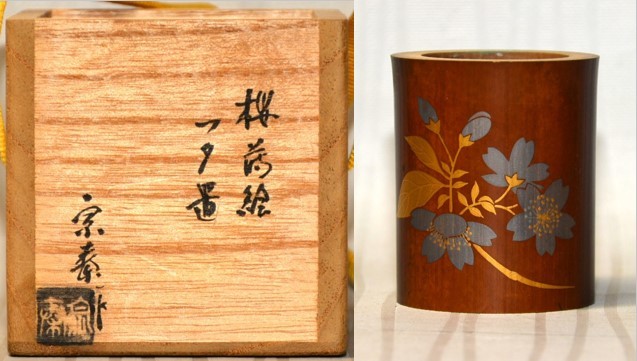 桜蒔絵
フタ置
宗泰作